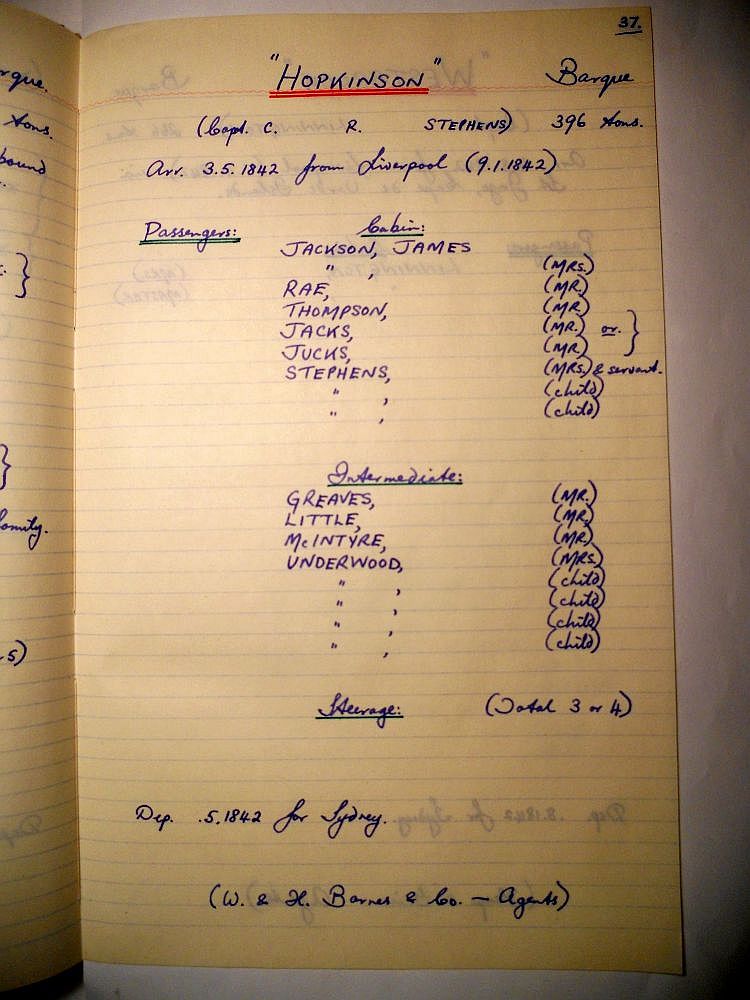 37.
"HOPKINSON" Barque
(Capt. C. R. STEPHENS) 396 tons.
Arr. 3.5.1842 from Liverpool (9.1.1842)
Passengers: Cabin:
JACKSON, JAMES
" , (MRS.)
RAE, (MR.)
THOMPSON, (MR.)
JACKS, (MR.) or. }
JUCKS, (MR.)
STEPHENS, (MRS.) & servant.
" , (child)
" , (child)
Intermediate:
GREAVES, (MR.)
LITTLE, (MR.)
McINTYRE, (MR.)
UNDERWOOD, (MRS.)
" , (child)
" , (child)
" , (child)
" , (child)
Steerage: (Total 3 or 4)
Dep. .5.1842 for Sydney.
(W. & H. Barnes & Co. — Agents)
rgue.
tons.
bound
}
}
family.
5)